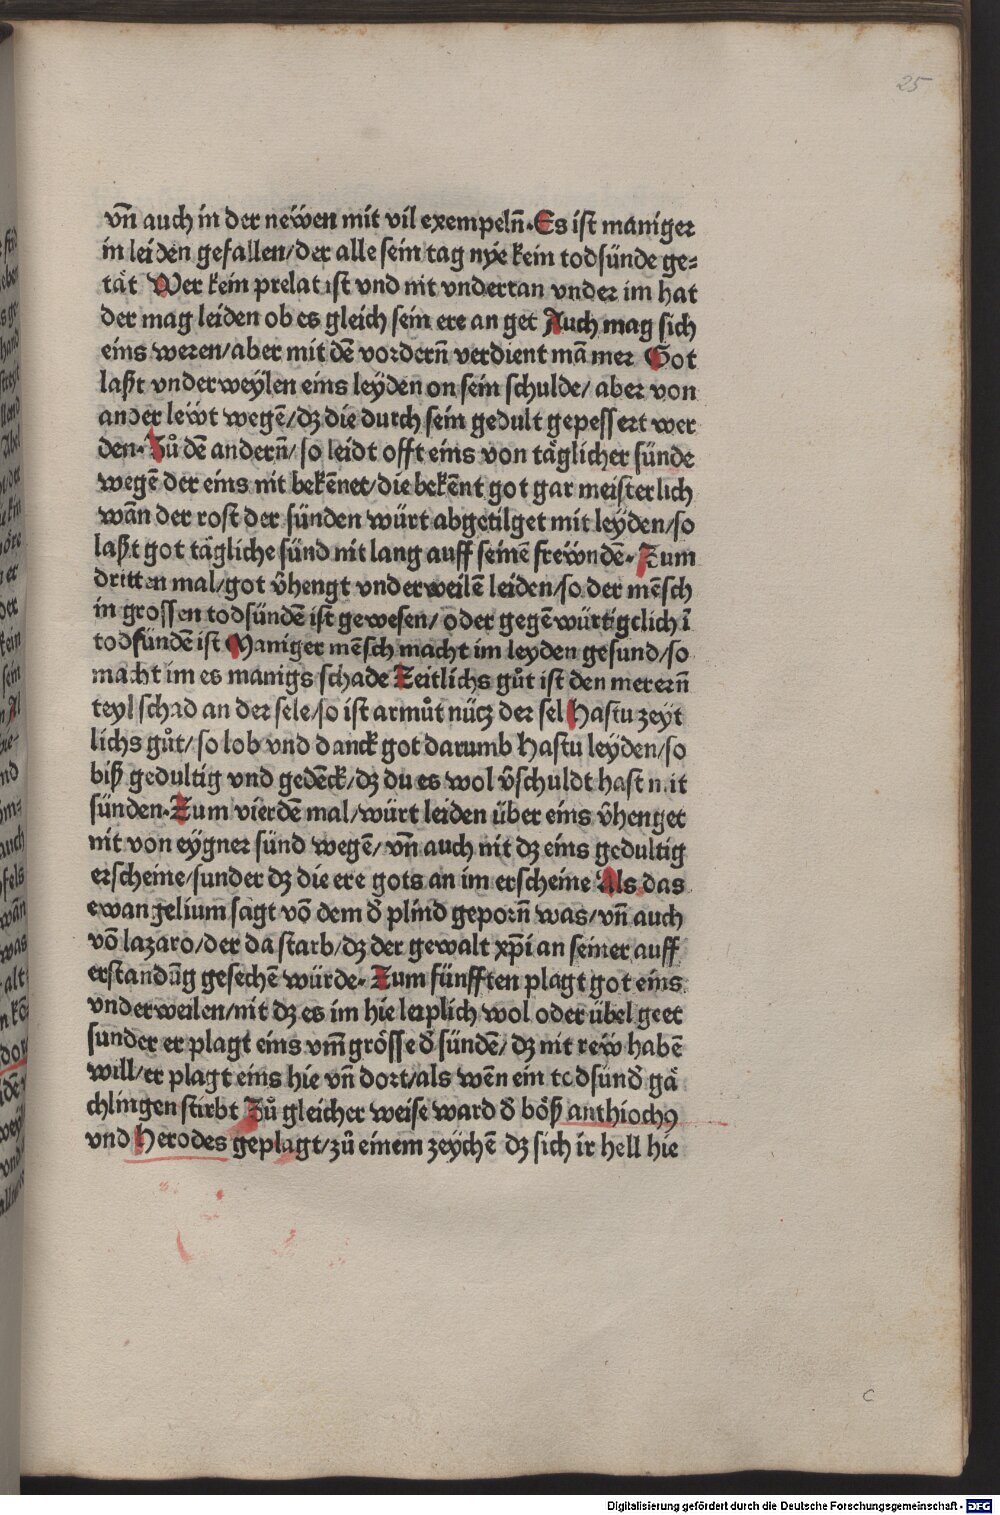 25
vn̄ auch in der neẅen mit vil exempeln̄. Es ist maniger
in leiden gefallen/der alle sein tag nye kein todsünde ge⸗
tät Wer kein prelat ist vnd nit vndertan vnder im hat
der mag leiden ob es gleich sein ere an get Auch mag sich
eins weren/aber mit dē vordern̄ verdient mā mer Got
laßt vnderweylen eins leyden on sein schulde/ aber von
ander leẅt wegē/dz die durch sein gedult gepessert wer
den. Zů dē andern̄/so leidt offt eins von täglicher sünde
wegē der eins nit bekēnet/die bekēnt got gar meisterlich
wān der rost der sünden würt abgetilget mit leyden/so
laßt got tägliche sünd nit lang auff seinē freẅndē. Zum
dritten mal/got v̄hengt vnderweilē leiden/so der mēsch
in grossen todsündē ist gewesen/ oder gegēwürtigclich ī
todsündē ist Maniger mēsch macht im leyden gesund/so
macht im es manigs schade Zeitlichs gůt ist den merern̄
teyl schad an der sele/so ist armůt nücz der sel Hastu zeyt
lichs gůt/so lob vnd danck got darumb Hastu leyden/so
biß gedultig vnd gedēck/dz du es wol v̄schuldt hast mit
sünden. Zum vierdē mal/würt leiden über eins v̄henget
nit von eygner sünd wegē/vn̄ auch nit dz eins gedultig
erscheine/sunder dz die ere gots an im erscheine Als das
ewangelium sagt vō dem d̄ plind geporn̄ was/vn̄ auch
vō lazaro/der da starb/dz der gewalt xp̄i an seiner auff
erstandūg gesechē würde. Zum fünfften plagt got eins
vnderweilen/nit dz es im hie leiplich wol oder übel geet
sunder er plagt eins vm̄ grösse d̄ sündē/dz nit reẅ habē
will/er plagt eins hie vn̄ dort/als wēn ein todsünd̄ gä
chlingen stirbt Zů gleicher weise ward d̄ böß anthiochꝰ
vnd Herodes geplagt/zů einem zeychē dz sich ir hell hie
c
Digitalisierung gefördert durch die Deutsche Forschungsgemeinschaft - DFG